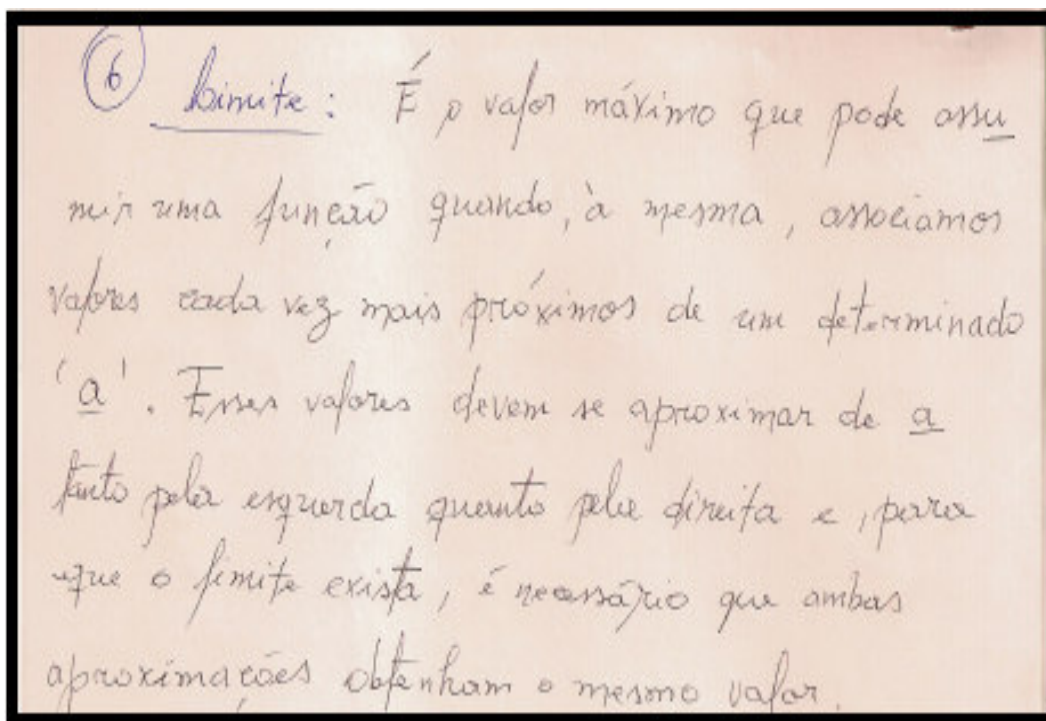 6 Limite: É o valor máximo que pode assu
mir uma função quando, à mesma, associamos
valores cada vez mais próximos de um determinado
'a'. Esses valores devem se aproximar de a
tanto pela esquerda quanto pela direita e, para
que o limite exista, é necessário que ambas
aproximações obtenham o mesmo valor.